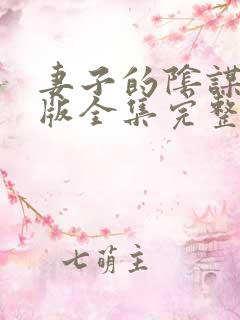 妻子的陰謀
版全集完整
七萌主